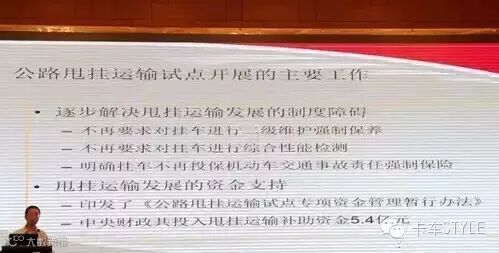 公路甩挂运输试点开展的主要工作
• 逐步解决甩挂运输发展的制度障碍
– 不再要求对挂车进行二级维护强制保养
– 不再要求对挂车进行综合性能检测
– 明确挂车不再投保机动车交通事故责任强制保险
• 甩挂运输发展的资金支持
– 印发了《公路甩挂运输试点专项资金管理暂行办法》
– 中央财政共投入甩挂运输补助资金5.4亿元
卡车STYLE